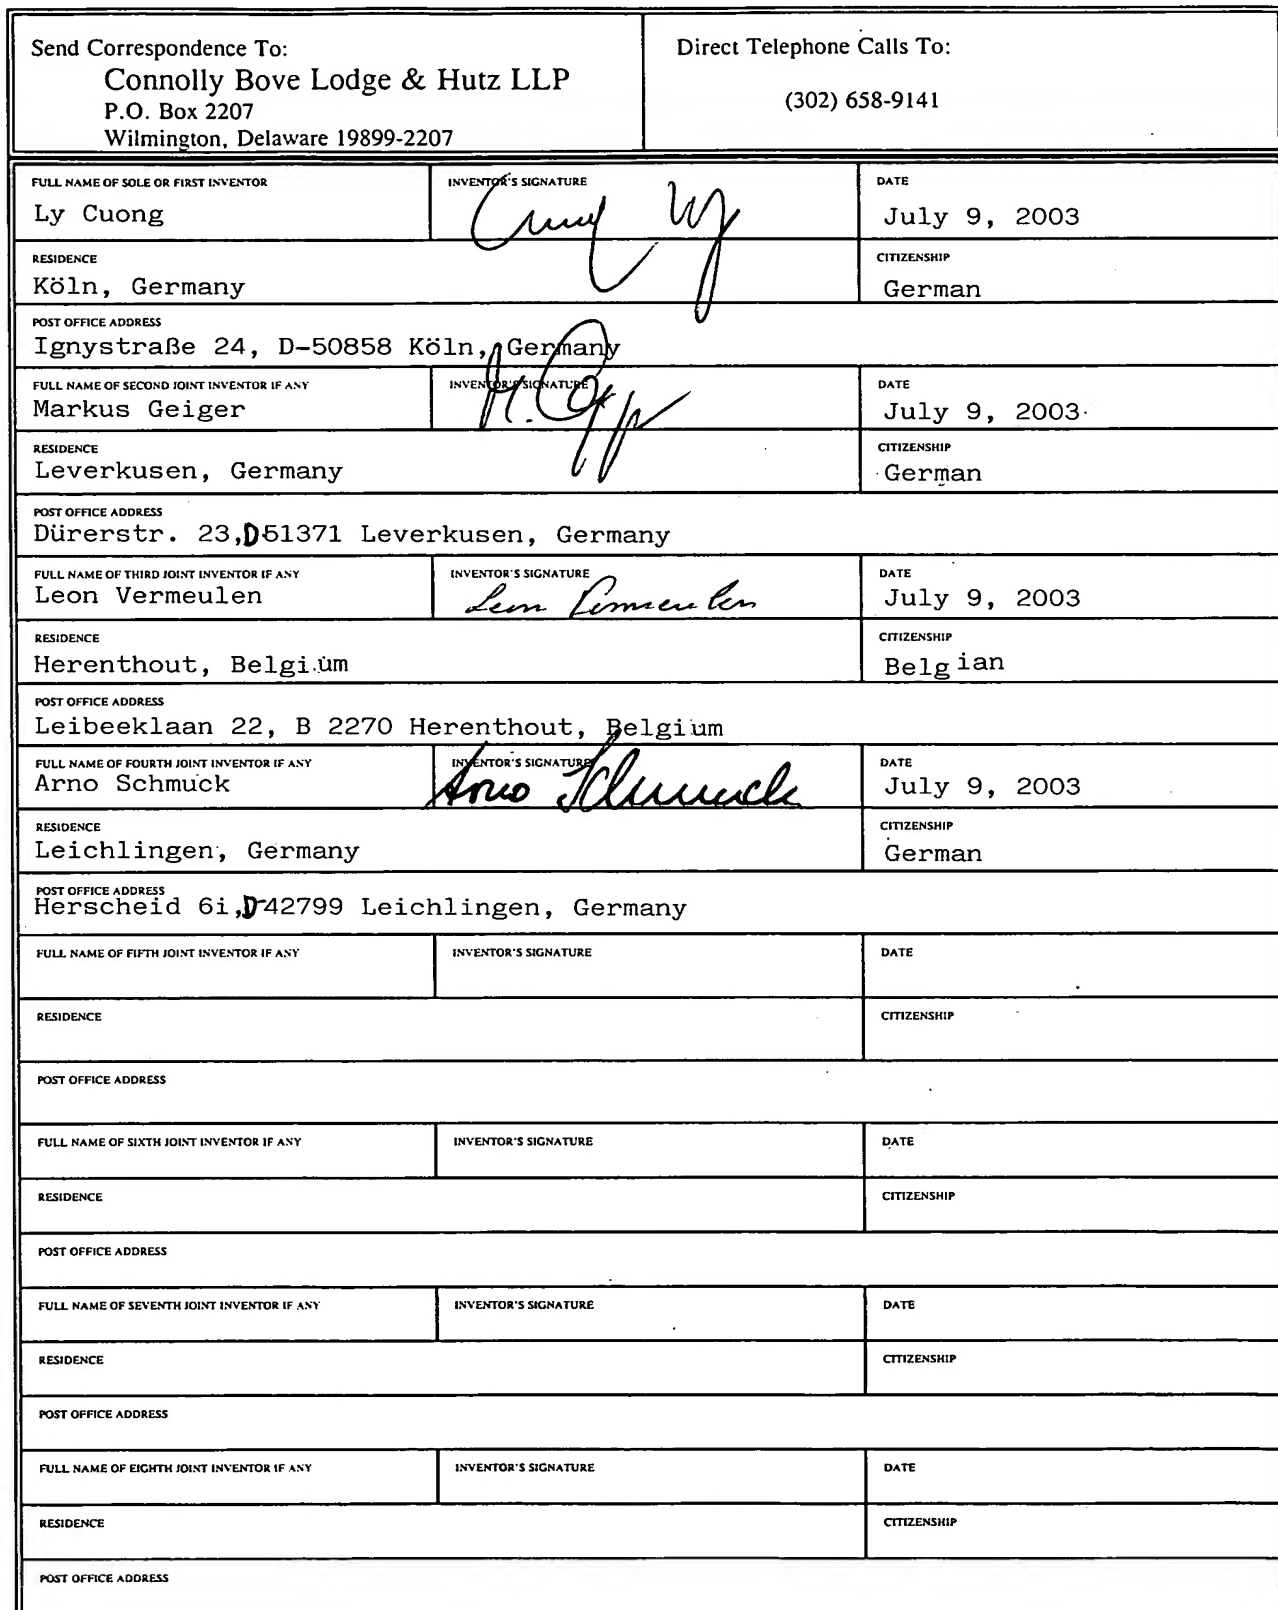 Send Correspondence To:
Connolly Bove Lodge & Hutz LLP
P.O. Box 2207
Wilmington, Delaware 19899-2207
Direct Telephone Calls To:
(302) 658-9141
FULL NAME OF SOLE OR FIRST INVENTOR
Ly Cuong
INVENTOR'S SIGNATURE
DATE
July 9, 2003
RESIDENCE
Köln, Germany
CITIZENSHIP
German
POST OFFICE ADDRESS
Ignystraße 24, D-50858 Köln, Germany
FULL NAME OF SECOND JOINT INVENTOR IF ANY
Markus Geiger
INVENTOR'S SIGNATURE
DATE
July 9, 2003
RESIDENCE
Leverkusen, Germany
CITIZENSHIP
German
POST OFFICE ADDRESS
Dürerstr. 23, D51371 Leverkusen, Germany
FULL NAME OF THIRD JOINT INVENTOR IF ANY
Leon Vermeulen
INVENTOR'S SIGNATURE
Leon Vermeulen
DATE
July 9, 2003
RESIDENCE
Herenthout, Belgium
CITIZENSHIP
Belgian
POST OFFICE ADDRESS
Leibeeklaan 22, B 2270 Herenthout, Belgium
FULL NAME OF FOURTH JOINT INVENTOR IF ANY
Arno Schmuck
INVENTOR'S SIGNATURE
Arno Schmuck
DATE
July 9, 2003
RESIDENCE
Leichlingen, Germany
CITIZENSHIP
German
POST OFFICE ADDRESS
Herscheid 6i, D-42799 Leichlingen, Germany
FULL NAME OF FIFTH JOINT INVENTOR IF ANY
INVENTOR'S SIGNATURE
DATE
RESIDENCE
CITIZENSHIP
POST OFFICE ADDRESS
FULL NAME OF SIXTH JOINT INVENTOR IF ANY
INVENTOR'S SIGNATURE
DATE
RESIDENCE
CITIZENSHIP
POST OFFICE ADDRESS
FULL NAME OF SEVENTH JOINT INVENTOR IF ANY
INVENTOR'S SIGNATURE
DATE
RESIDENCE
CITIZENSHIP
POST OFFICE ADDRESS
FULL NAME OF EIGHTH JOINT INVENTOR IF ANY
INVENTOR'S SIGNATURE
DATE
RESIDENCE
CITIZENSHIP
POST OFFICE ADDRESS